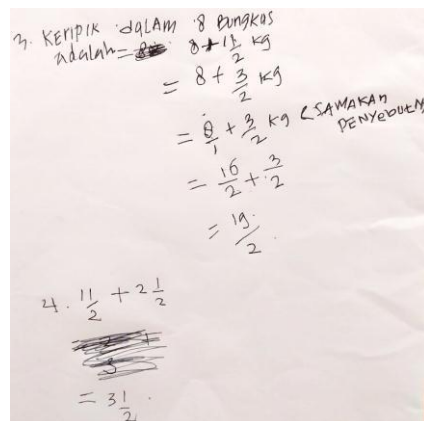 3. KERIPIK dALAM 8 BUNGKUS
adalah = 8 + 1 1/2 kg
= 8 + 3/2 kg
= 8/1 + 3/2 kg (SAMAKAN PENYEBUTNYA
= 16/2 + 3/2
= 19/2.
4. 11/2 + 2 1/2
= 3 1/2.